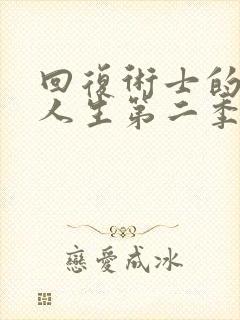 回復術士的
人生第二季
戀愛成冰